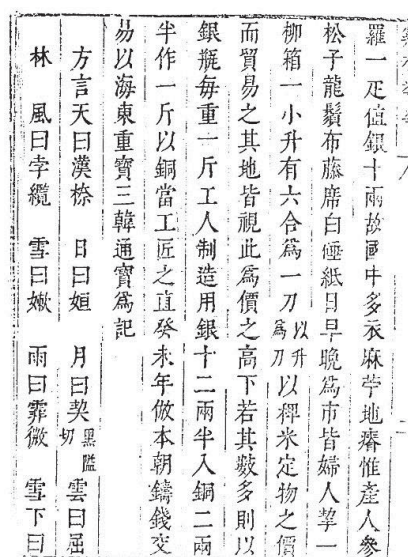 羅一疋值銀十兩故國中多衣麻苧地瘠惟產人參
松子龍鬚布藤席白硾紙日早晚爲市皆婦人挈一
柳箱一小升有六合爲一刀以升爲刀以稗米定物之價
而貿易之其地皆視此爲價之高下若其數多則以
銀瓶每重一斤工人制造用銀十二兩半入銅二兩
半作一斤以銅當工匠之直癸未年倣本朝鑄錢交
易以海東重寶三韓通寶爲記
方言天曰漢捺 日曰姮 月曰契黑隘切雲曰屈
林 風曰孛纜 雪曰嫩 雨曰霏微 雪下曰